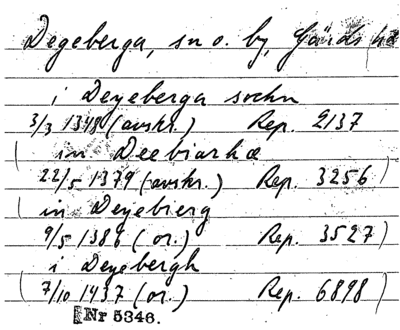 Degeberga, sn o. by, Gärds hd
i Deyeberga sochn
3/3 1348 (avskr.) Rep. 2137
(in Deebiarhæ
22/5 1379 (avskr.) Rep. 3256)
(in Deyebierg
9/5 1386 (or.) Rep. 3527)
i Deyebergh
(7/10 1437 (or.) Rep. 6898)
Nr 5346.